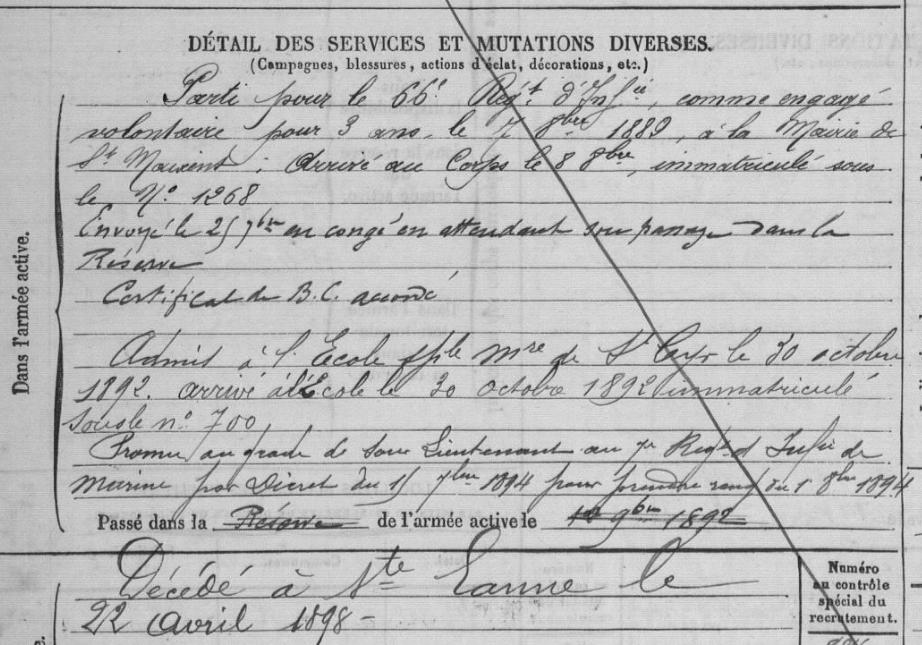 DÉTAIL DES SERVICES ET MUTATIONS DIVERSES.
(Campagnes, blessures, actions d'éclat, décorations, etc.)
Dans l'armée active.
Parti pour le 66e Régt d'Infie, comme engagé
volontaire pour 3 ans, le 7 8bre 1889, à la Mairie de
St Maixent; arrivé au Corps le 8 8bre, immatriculé sous
le No. 1268
Envoyé le 25 7bre en congé en attendant son passage dans la
Réserve
Certificat de B.C. accordé
Admis à l'Ecole sple mre de St Cyr le 30 octobre
1892. arrivé à l'Ecole le 30 octobre 1892 immatriculé
sous le no. 700
Promu au grade de sous Lieutenant au Regt d'Infie de
Marine par Décret du 15 7bre 1894 pour prendre rang du 1 8bre 1894
Passé dans la Réserve de l'armée active le 1er 9bre 1892
Décédé à Ste le
22 avril 1898-
Numéro
au contrôle
spécial du
recrutement.